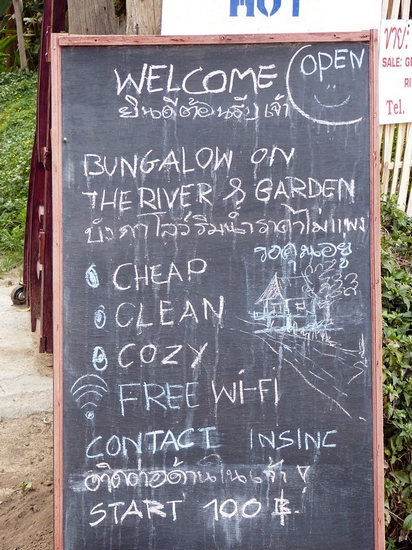 HOT
ขาย
SALE:
Tel.
OPEN
WELCOME
ยินดีต้อนรับเจ้า
BUNGALOW ON
THE RIVER & GARDEN
บังกาโลว์ริมน้ำราคาไม่แพง
CHEAP
CLEAN
COZY
FREE Wi-Fi
CONTACT INSINC
ติดต่อด้านในเจ้า
START 100 ฿.